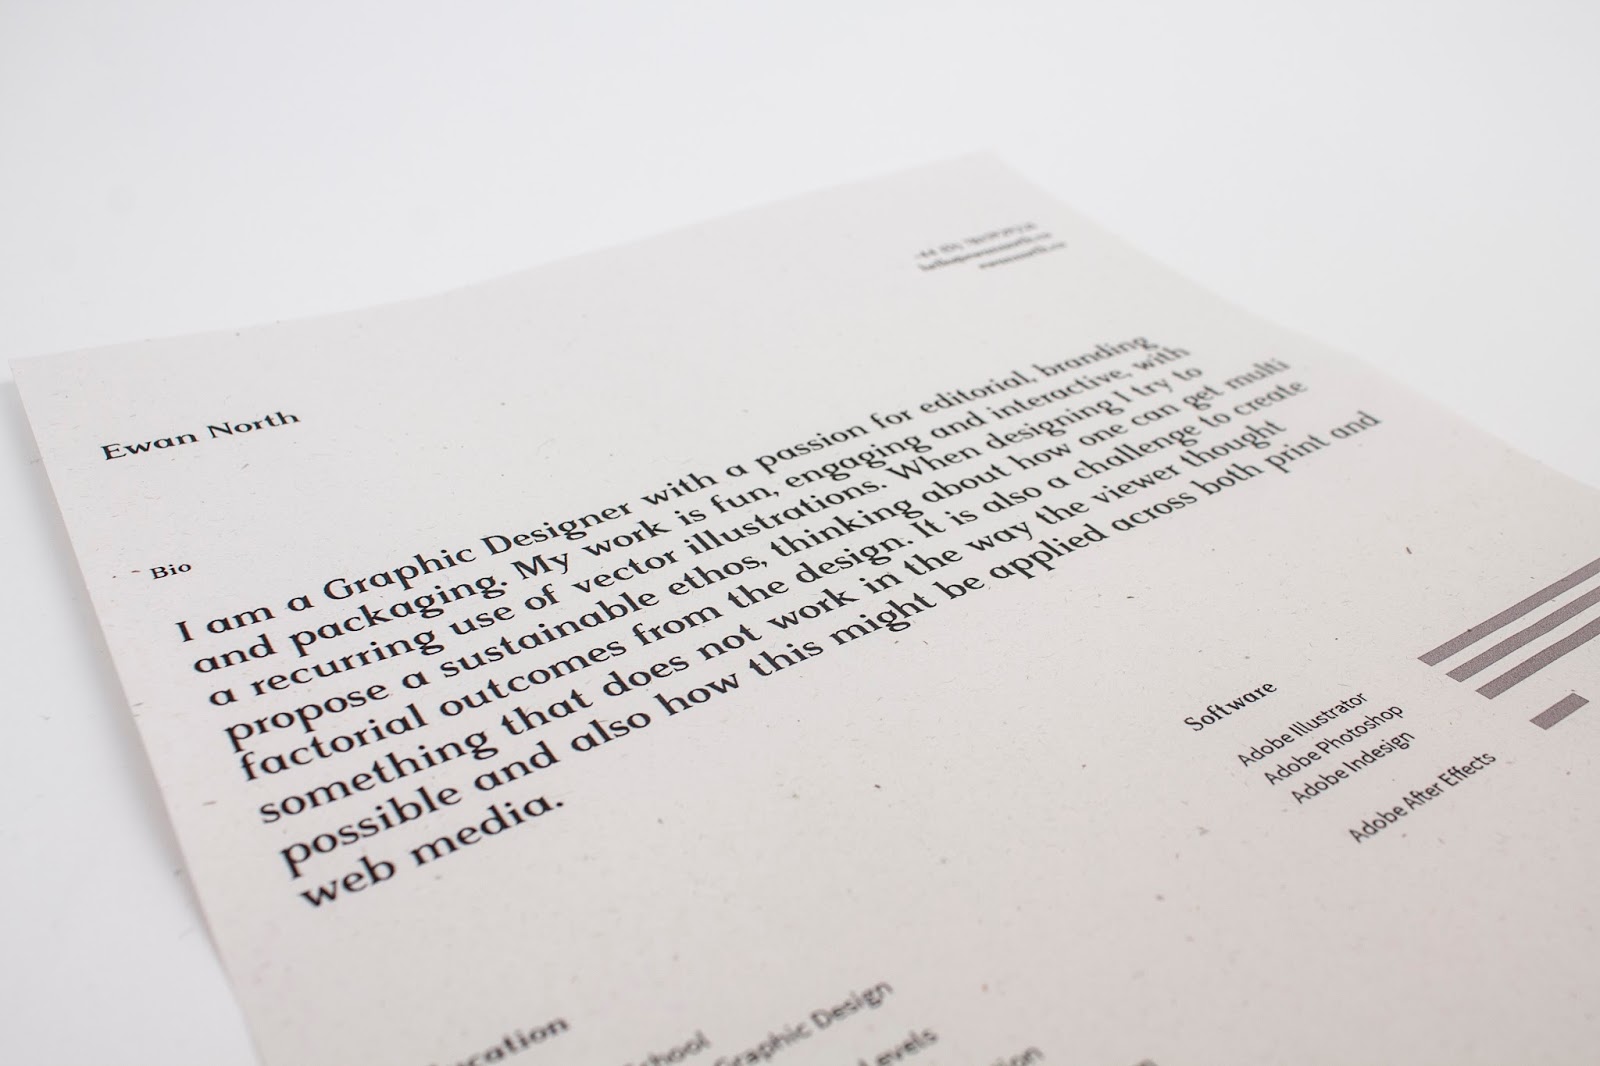 Ewan North
Bio
I am a Graphic Designer with a passion for editorial, branding
and packaging. My work is fun, engaging and interactive, with
a recurring use of vector illustrations. When designing I try to
propose a sustainable ethos, thinking about how one can get multi
factorial outcomes from the design. It is also a challenge to create
something that does not work in the way the viewer thought
possible and also how this might be applied across both print and
web media.
Software
Adobe Illustrator
Adobe Photoshop
Adobe Indesign
Adobe After Effects
Graphic Design